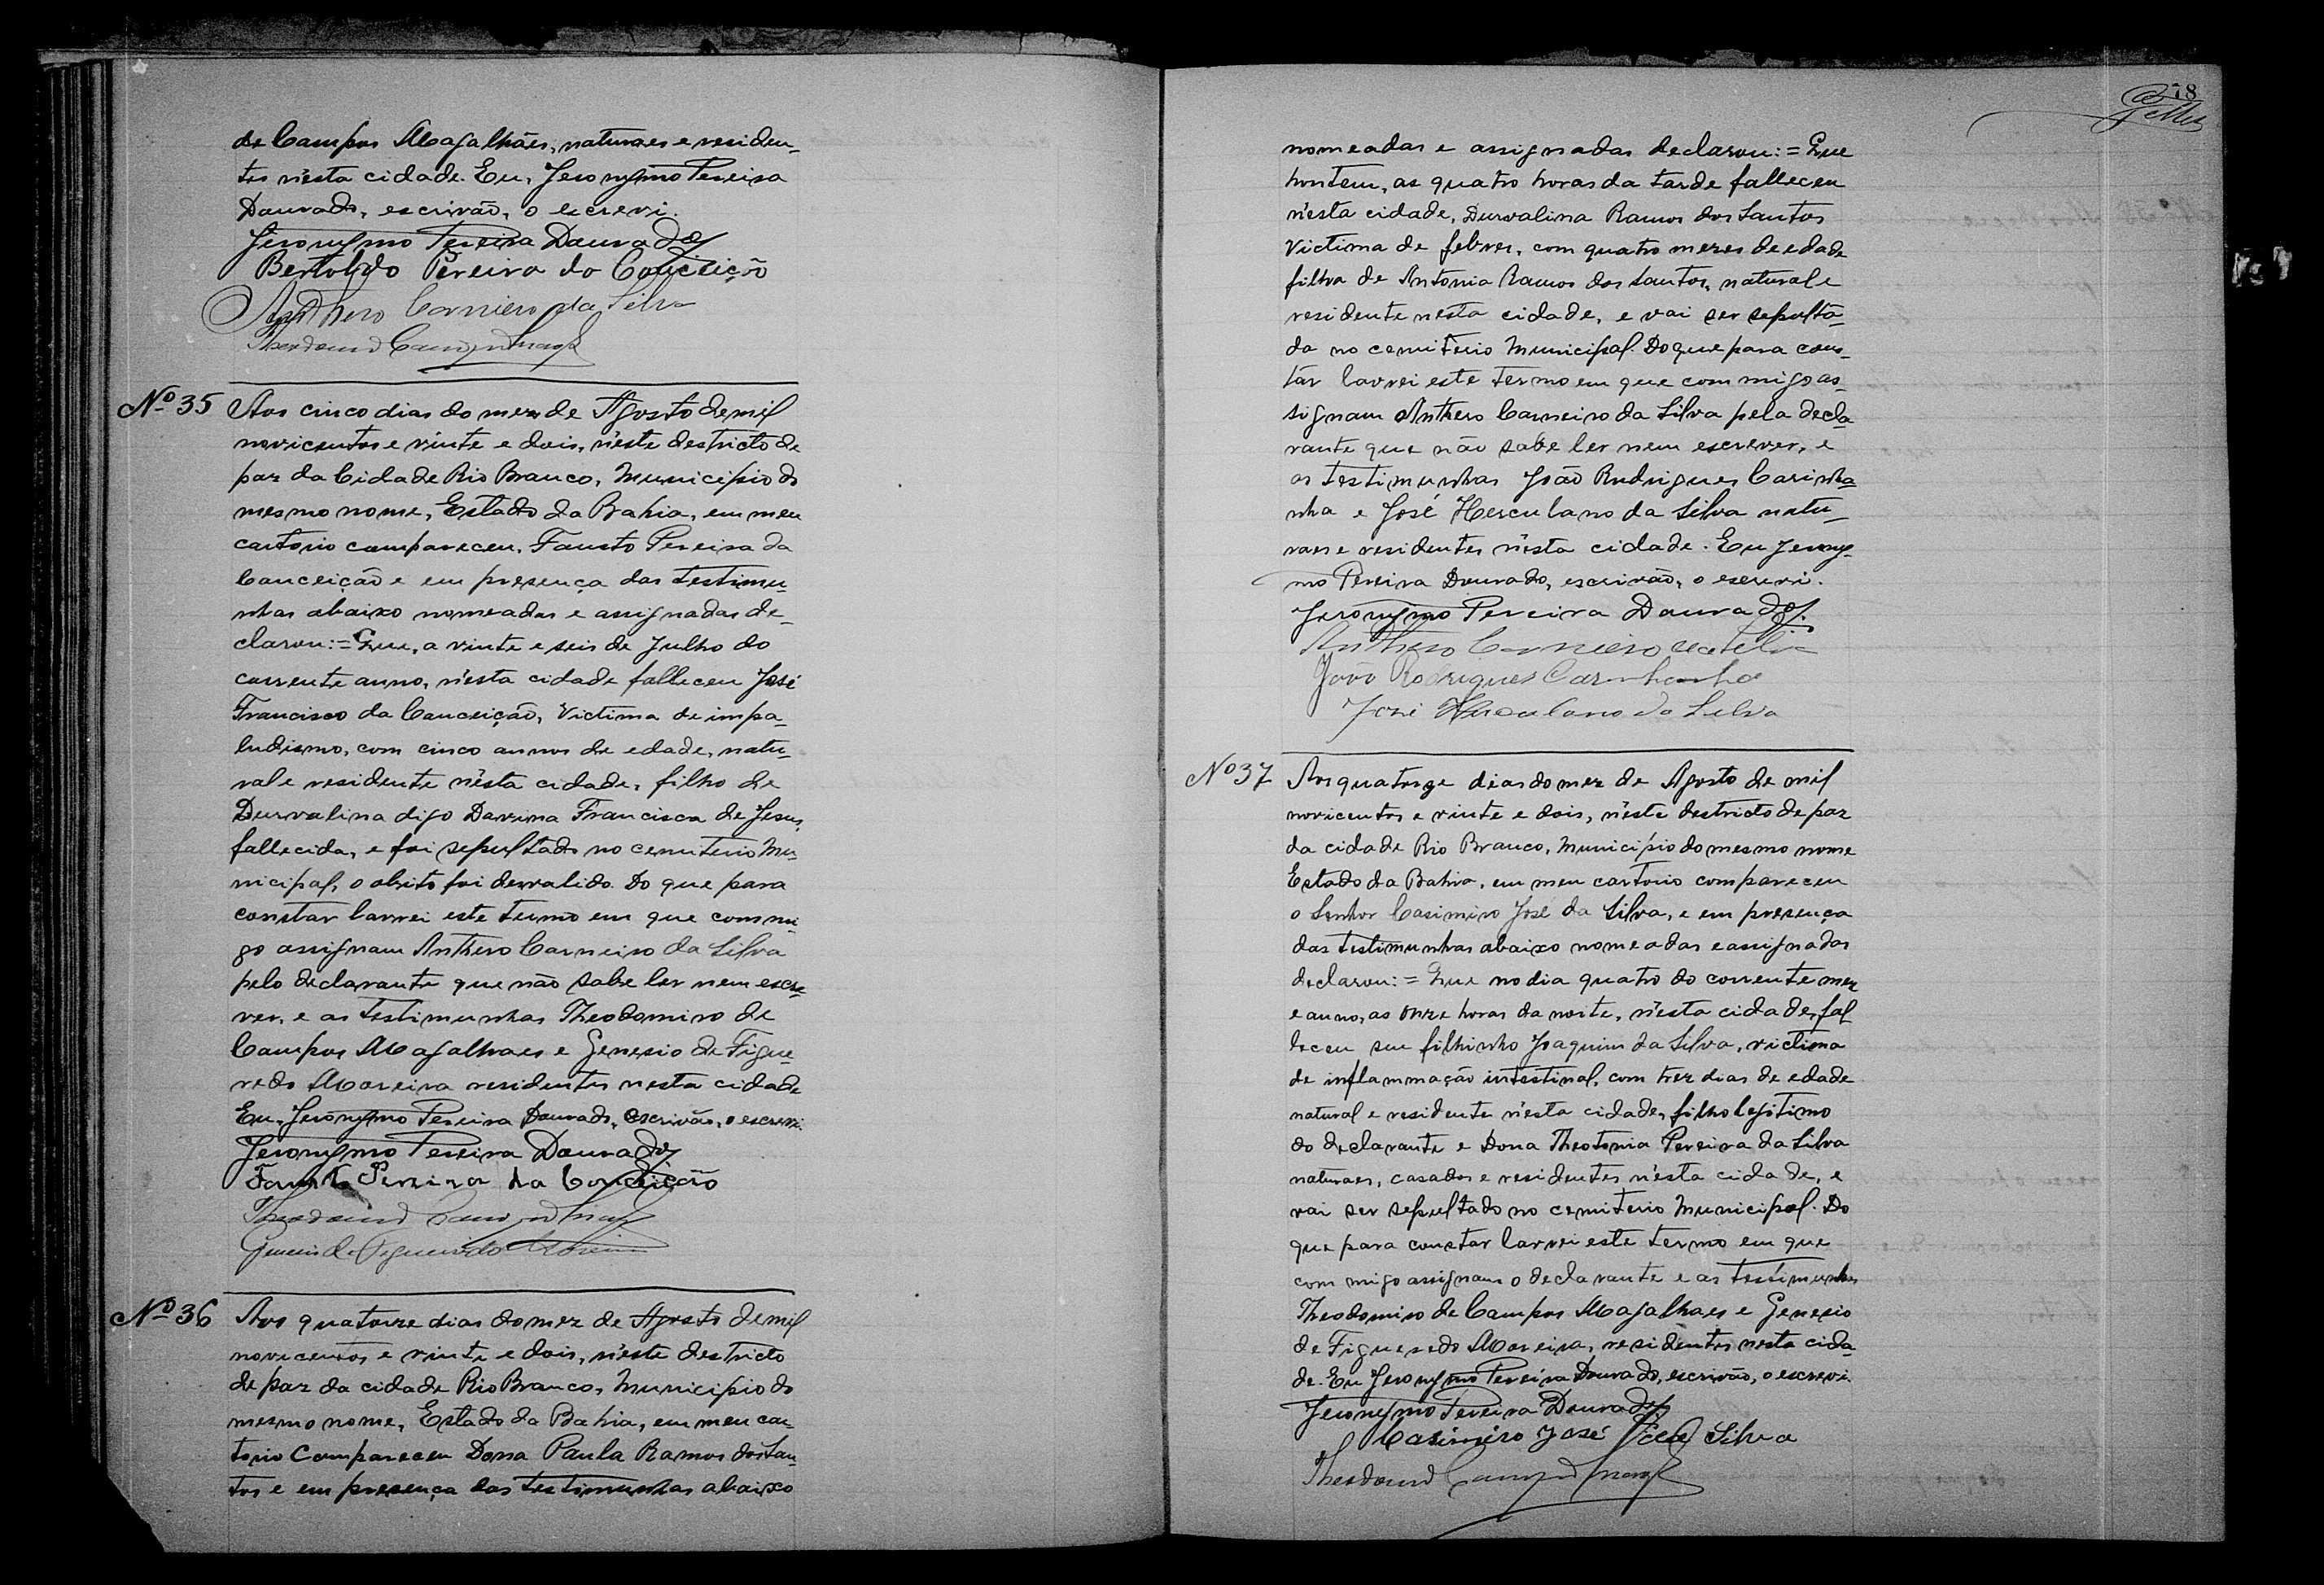 de Campos Magalhães, naturaes e residen-
tes n'esta cidade. Eu, Jeronymo Pereira
Dourado, escrivão, o escrevi.
Jeronymo Pereira Dourado
Bertoldo Pereira da Conceição
Anthero Carneiro da Silva
Nº 35
Aos cinco dias do mez de Agosto de mil
novicentos e vinte e dois, n'este destricto de
paz da Cidade Rio Branco, Municipio do
mesmo nome, Estado da Bahia, em meu
cartorio compareceu, Fausto Pereira da
Conceição e em presença das testimu-
nhas abaixo nomeadas e assignadas de-
clarou:= Que, a vinte e seis de Julho do
corrente anno, n'esta cidade falleceu José
Francisco da Conceição, Victima de impa-
ludismo, com cinco annos de edade, natu-
ral e residente n'esta cidade, filho de
Durvalina digo Davina Francisca de Jesus,
fallecida, e foi sepultado no cemiterio Mu-
nicipal, o obito foi desvalido. Do que para
constar lavrei este termo em que commi-
go assignam Anthero Carneiro da Silva
pelo declarante que não sabe ler nem escre-
ver, e as testimunhas Theodomiro de
Campos Magalhaes e Genesio de Figue-
redo Moreira residentes nesta cidade
Eu, Jeronymo Pereira Dourado, escrivão, o escrevi.
Jeronymo Pereira Dourado
Fausto Pereira da Conceição
Genesio de Figueiredo Moreira
Nº 36
Aos quatorze dias do mez de Agosto de mil
novicentos e vinte e dois, n'este destricto
de paz da cidade Rio Branco, Municipio do
mesmo nome, Estado da Bahia, em meu car-
torio Compareceu Dona Paula Ramos dos San-
tos e em presença das testimunhas abaixo
78
nomeadas e assignadas declarou:= Que
hontem, as quatro horas da tarde falleceu
n'esta cidade, Durvalina Ramos dos Santos
Victima de febres, com quatro mezes de edade
filha de Antonia Ramos dos Santos, natural e
residente n'esta cidade, e vai ser sepulta-
da no cemiterio Municipal. Do que para cons-
tar lavrei este termo em que commigo as-
signam Anthero Carneiro da Silva pela decla-
rante que não sabe ler nem escrever, e
as testimunhas João Rudrigues Carinha-
nha e José Herculano da Silva natu-
raes e residentes n'esta cidade. Eu Jerony-
mo Pereira Dourado, escrivão, o escrevi.
Jeronymo Pereira Dourado.
Anthero Carneiro da Silva
João Rodrigues Carinhanha
José Herculano da Silva
Nº 37
Aos quatorze dias do mez de Agosto de mil
novicentos e vinte e dois, n'este destricto de paz
da cidade Rio Branco, Municipio do mesmo nome
Estado da Bahia, em meu cartorio compareceu
o Senhor Casimiro José da Silva, e em presença
das testimunhas abaixo nomeadas e assignadas
declarou:= Que no dia quatro do corrente mez
e anno, as onze horas da noite, n'esta cidade, fal
leceu seu filhinho Joaquim da Silva, victima
de inflammação intestinal, com trez dias de edade
natural e residente n'esta cidade, filho legitimo
do declarante e Dona Theotonia Pereira da Silva
naturaes, casados e residentes n'esta cidade, e
vai ser sepultado no cemiterio Municipal. Do
que para constar lavrei este termo em que
com migo assignam o declarante e as testimunhas
Theodomiro de Campos Magalhaes e Genesio
de Figueredo Moreira, residentes nesta cida-
de. Eu Jeronymo Pereira Dourado, escrivão, o escrevi.
Jeronymo Pereira Dourado
Casimiro José da Silva